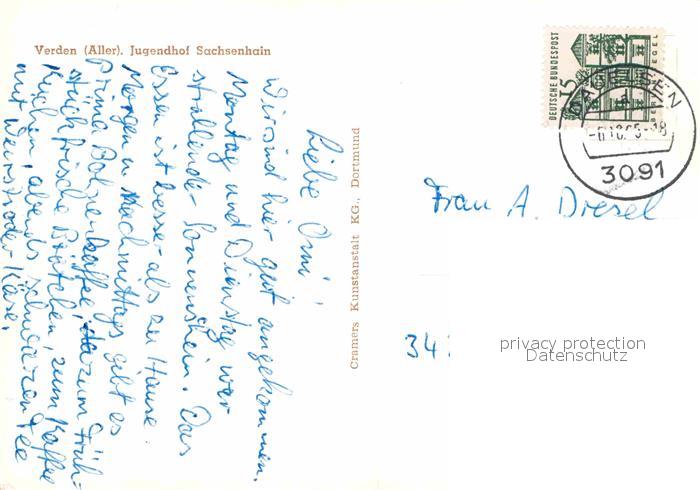 Verden (Aller). Jugendhof Sachsenhain
Liebe Omi!
Wir sind hier gut angekommen.
Montag und Dienstag war
strahlender Sonnenschein. Das
Essen ist besser als zu Hause.
Morgen u. Nachmittags gibt es
Prima Bohnenkaffee, dazu zum Früh-
stück frische Brötchen, zum Kaffee
Kuchen, abends schwarzen Tee
mit Wurst oder Käse.
Cramers Kunstanstalt KG., Dortmund
DEUTSCHE BUNDESPOST
15
TEGEL
3091
Frau A. Dresel
34
privacy protection
Datenschutz